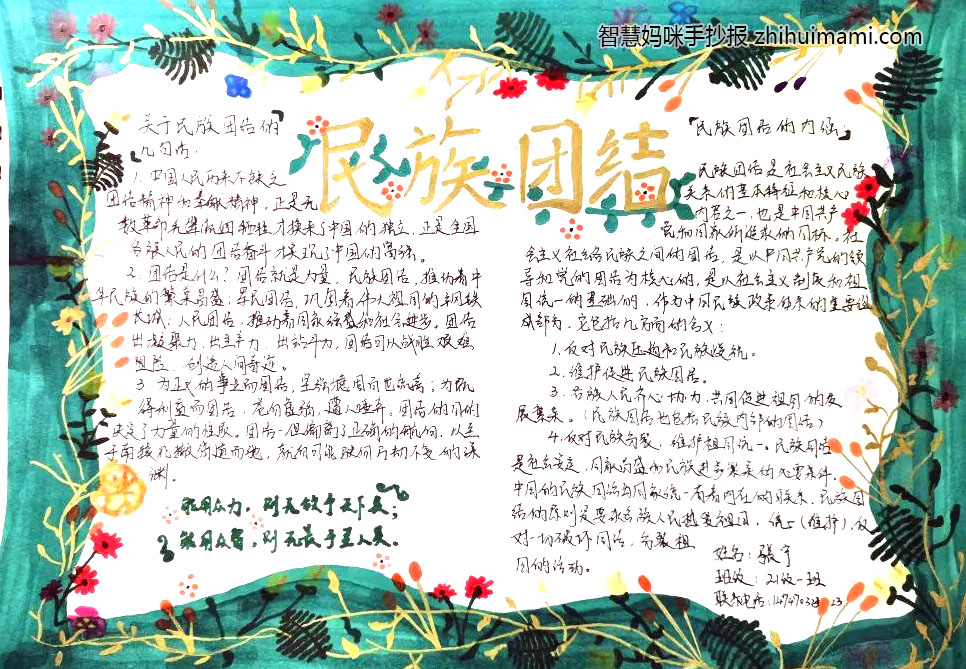 智慧妈咪手抄报 zhihuimami.com
民族团结
关于民族团结的
几句话:
1. 中国人民向来不缺乏
团结精神和奉献精神，正是无
数革命先辈的团结
才换来了中国的独立，正是全国
各族人民的团结奋斗才实现了中国的富强。
2. 团结是什么？团结就是力量，民族团结，推动着中
华民族的繁荣昌盛；军民团结，巩固着伟大祖国的钢铁
长城；人民团结，推动着国家强盛和社会进步。团结
出凝聚力，出生产力，出战斗力，团结可以战胜艰难
险阻，创造人间奇迹。
3. 为正义的事业而团结，
得利益而团结，
决定了力量的
团结一但偏离了正确的航向，
渊。
能用众力，则无敌于天下矣；
能用众智，则无畏于圣人矣。
「民族团结的内涵」
民族团结是社会主义民族
关系的基本特征和核心
内容之一，也是中国共产
党和国家所追求的目标。社
会主义社会各民族之间的团结，是以中国共产党的领
导和党的团结为核心的，是以社会主义制度和祖
国统一的基础的，作为中国民族政策体系的重要组
成部分，它包括几方面的含义：
1. 反对民族压迫和民族歧视。
2. 维护促进民族团结。
3. 各族人民齐心协力，共同促进祖国的发
展繁荣。（民族团结也包括民族内部的团结）
4. 反对民族分裂，维护祖国统一。民族团结
是社会安定，国家昌盛和民族进步繁荣的必要条件。
中国的民族团结与国家统一有着内在的联系，民族团
结的原则是要求各族人民热爱祖国，统一（维护），反
对一切破坏团结，分裂祖
国的活动。
姓名：张宇